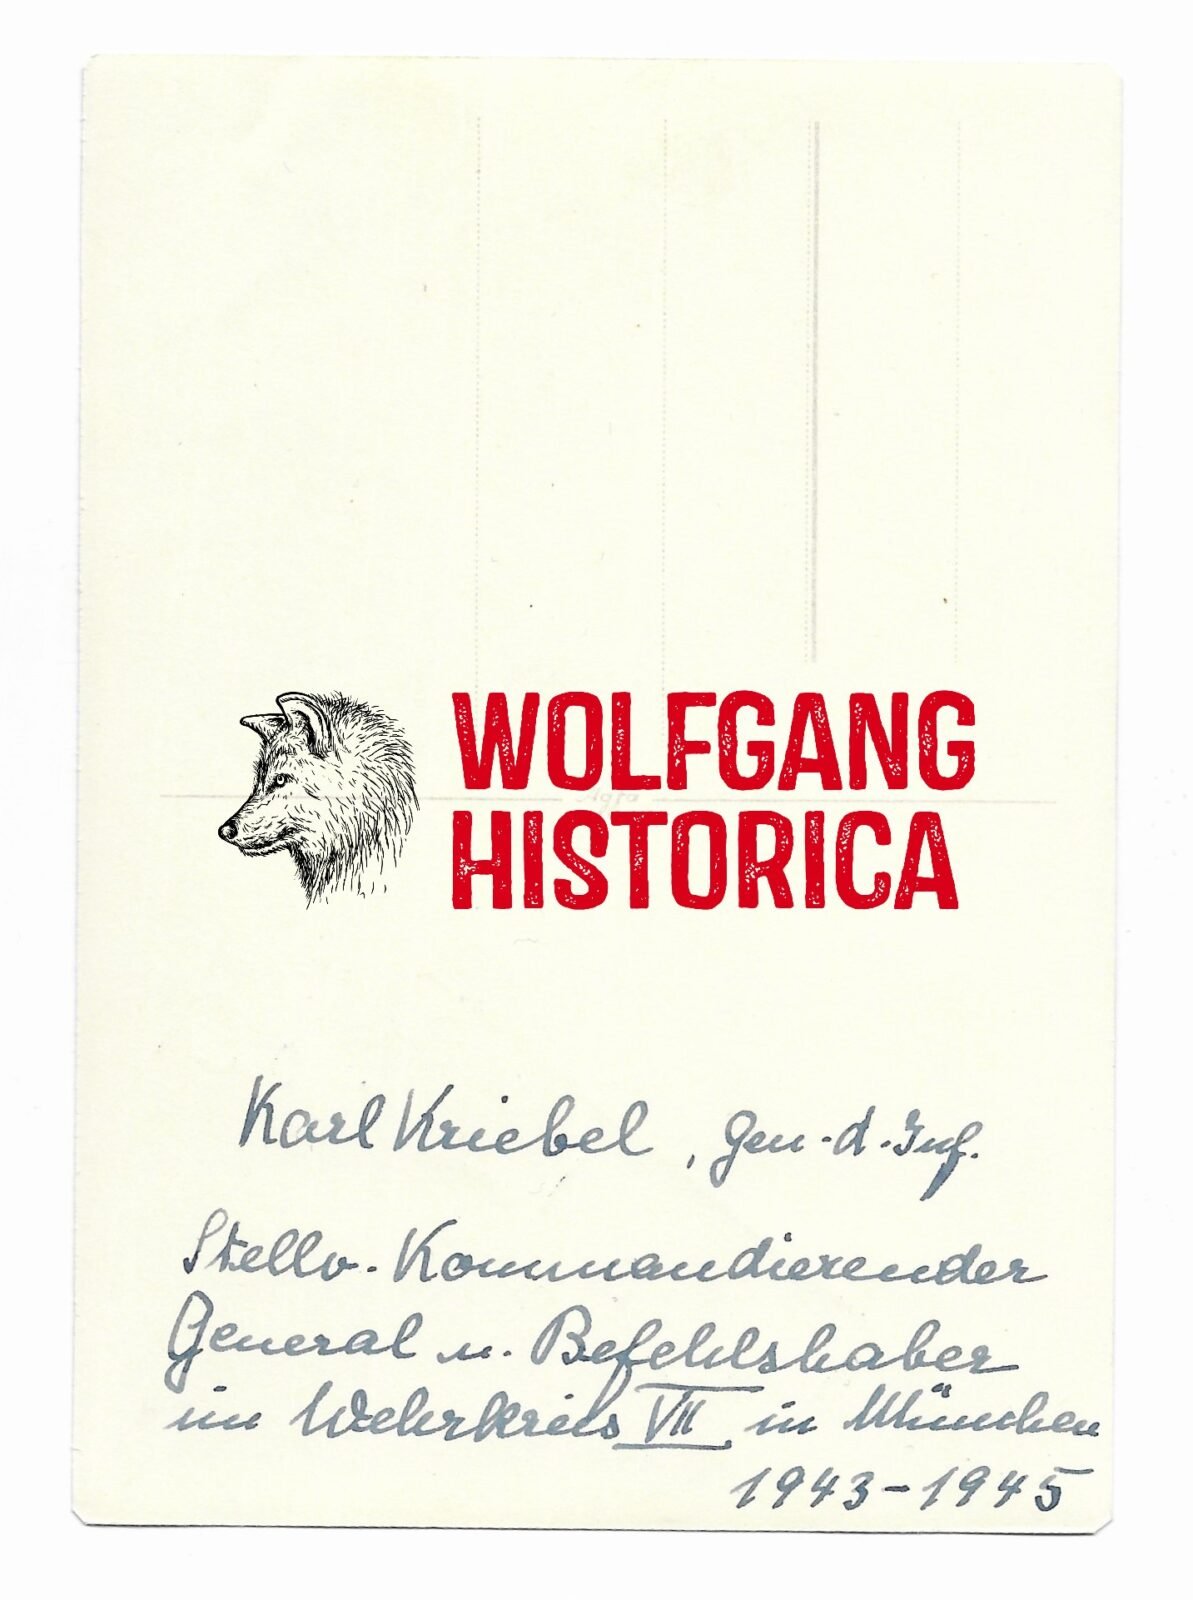 WOLFGANG
HISTORICA
Agfa
Karl Kriebel, Gen. d. Inf.
Stellv. Kommandierender
General u. Befehlshaber
im Wehrkreis VII in München
1943-1945